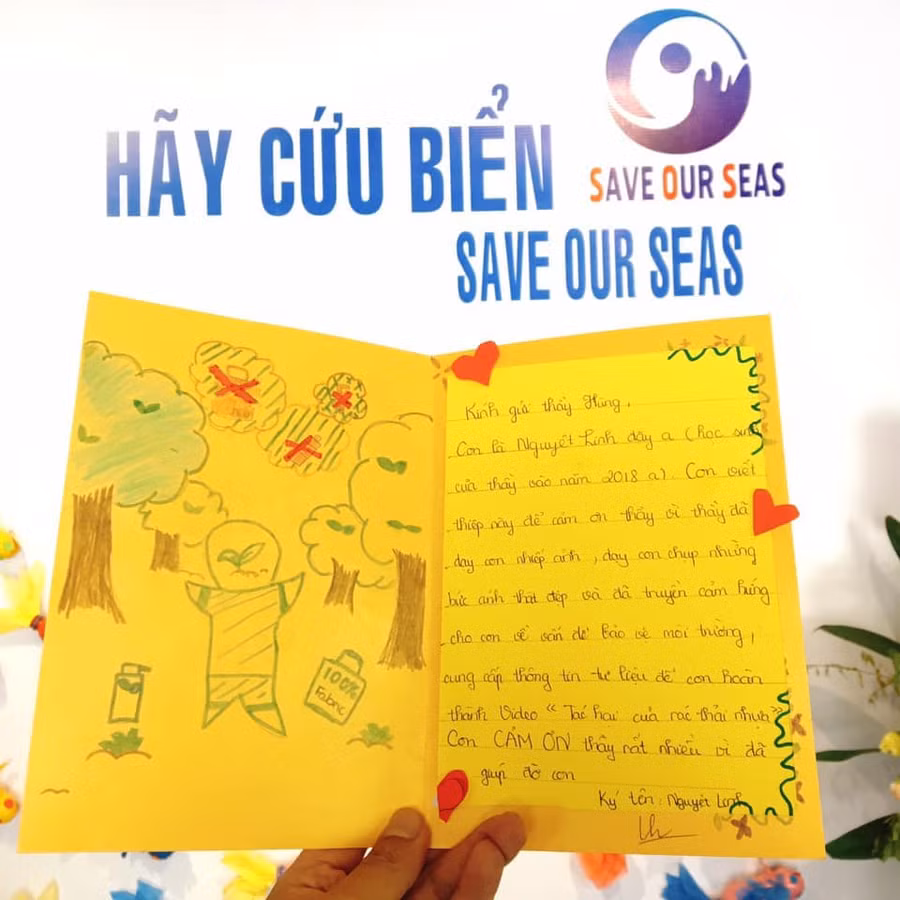 HÃY CỨU BIỂN
SAVE OUR SEAS
SAVE OUR SEAS
100%
Fabric
Kính gửi thầy Hùng,
Con là Nguyệt Linh đây ạ (học sinh
của thầy vào năm 2018 ạ). Con viết
thiệp này để cảm ơn thầy vì thầy đã
dạy con nhiếp ảnh, dạy con chụp những
bức ảnh thật đẹp và đã truyền cảm hứng
cho con về vấn đề bảo vệ môi trường,
cung cấp thông tin tư liệu để con hoàn
thành Video "Tác hại của rác thải nhựa"
Con CẢM ƠN thầy rất nhiều vì đã
giúp đỡ con
Ký tên: Nguyệt Linh